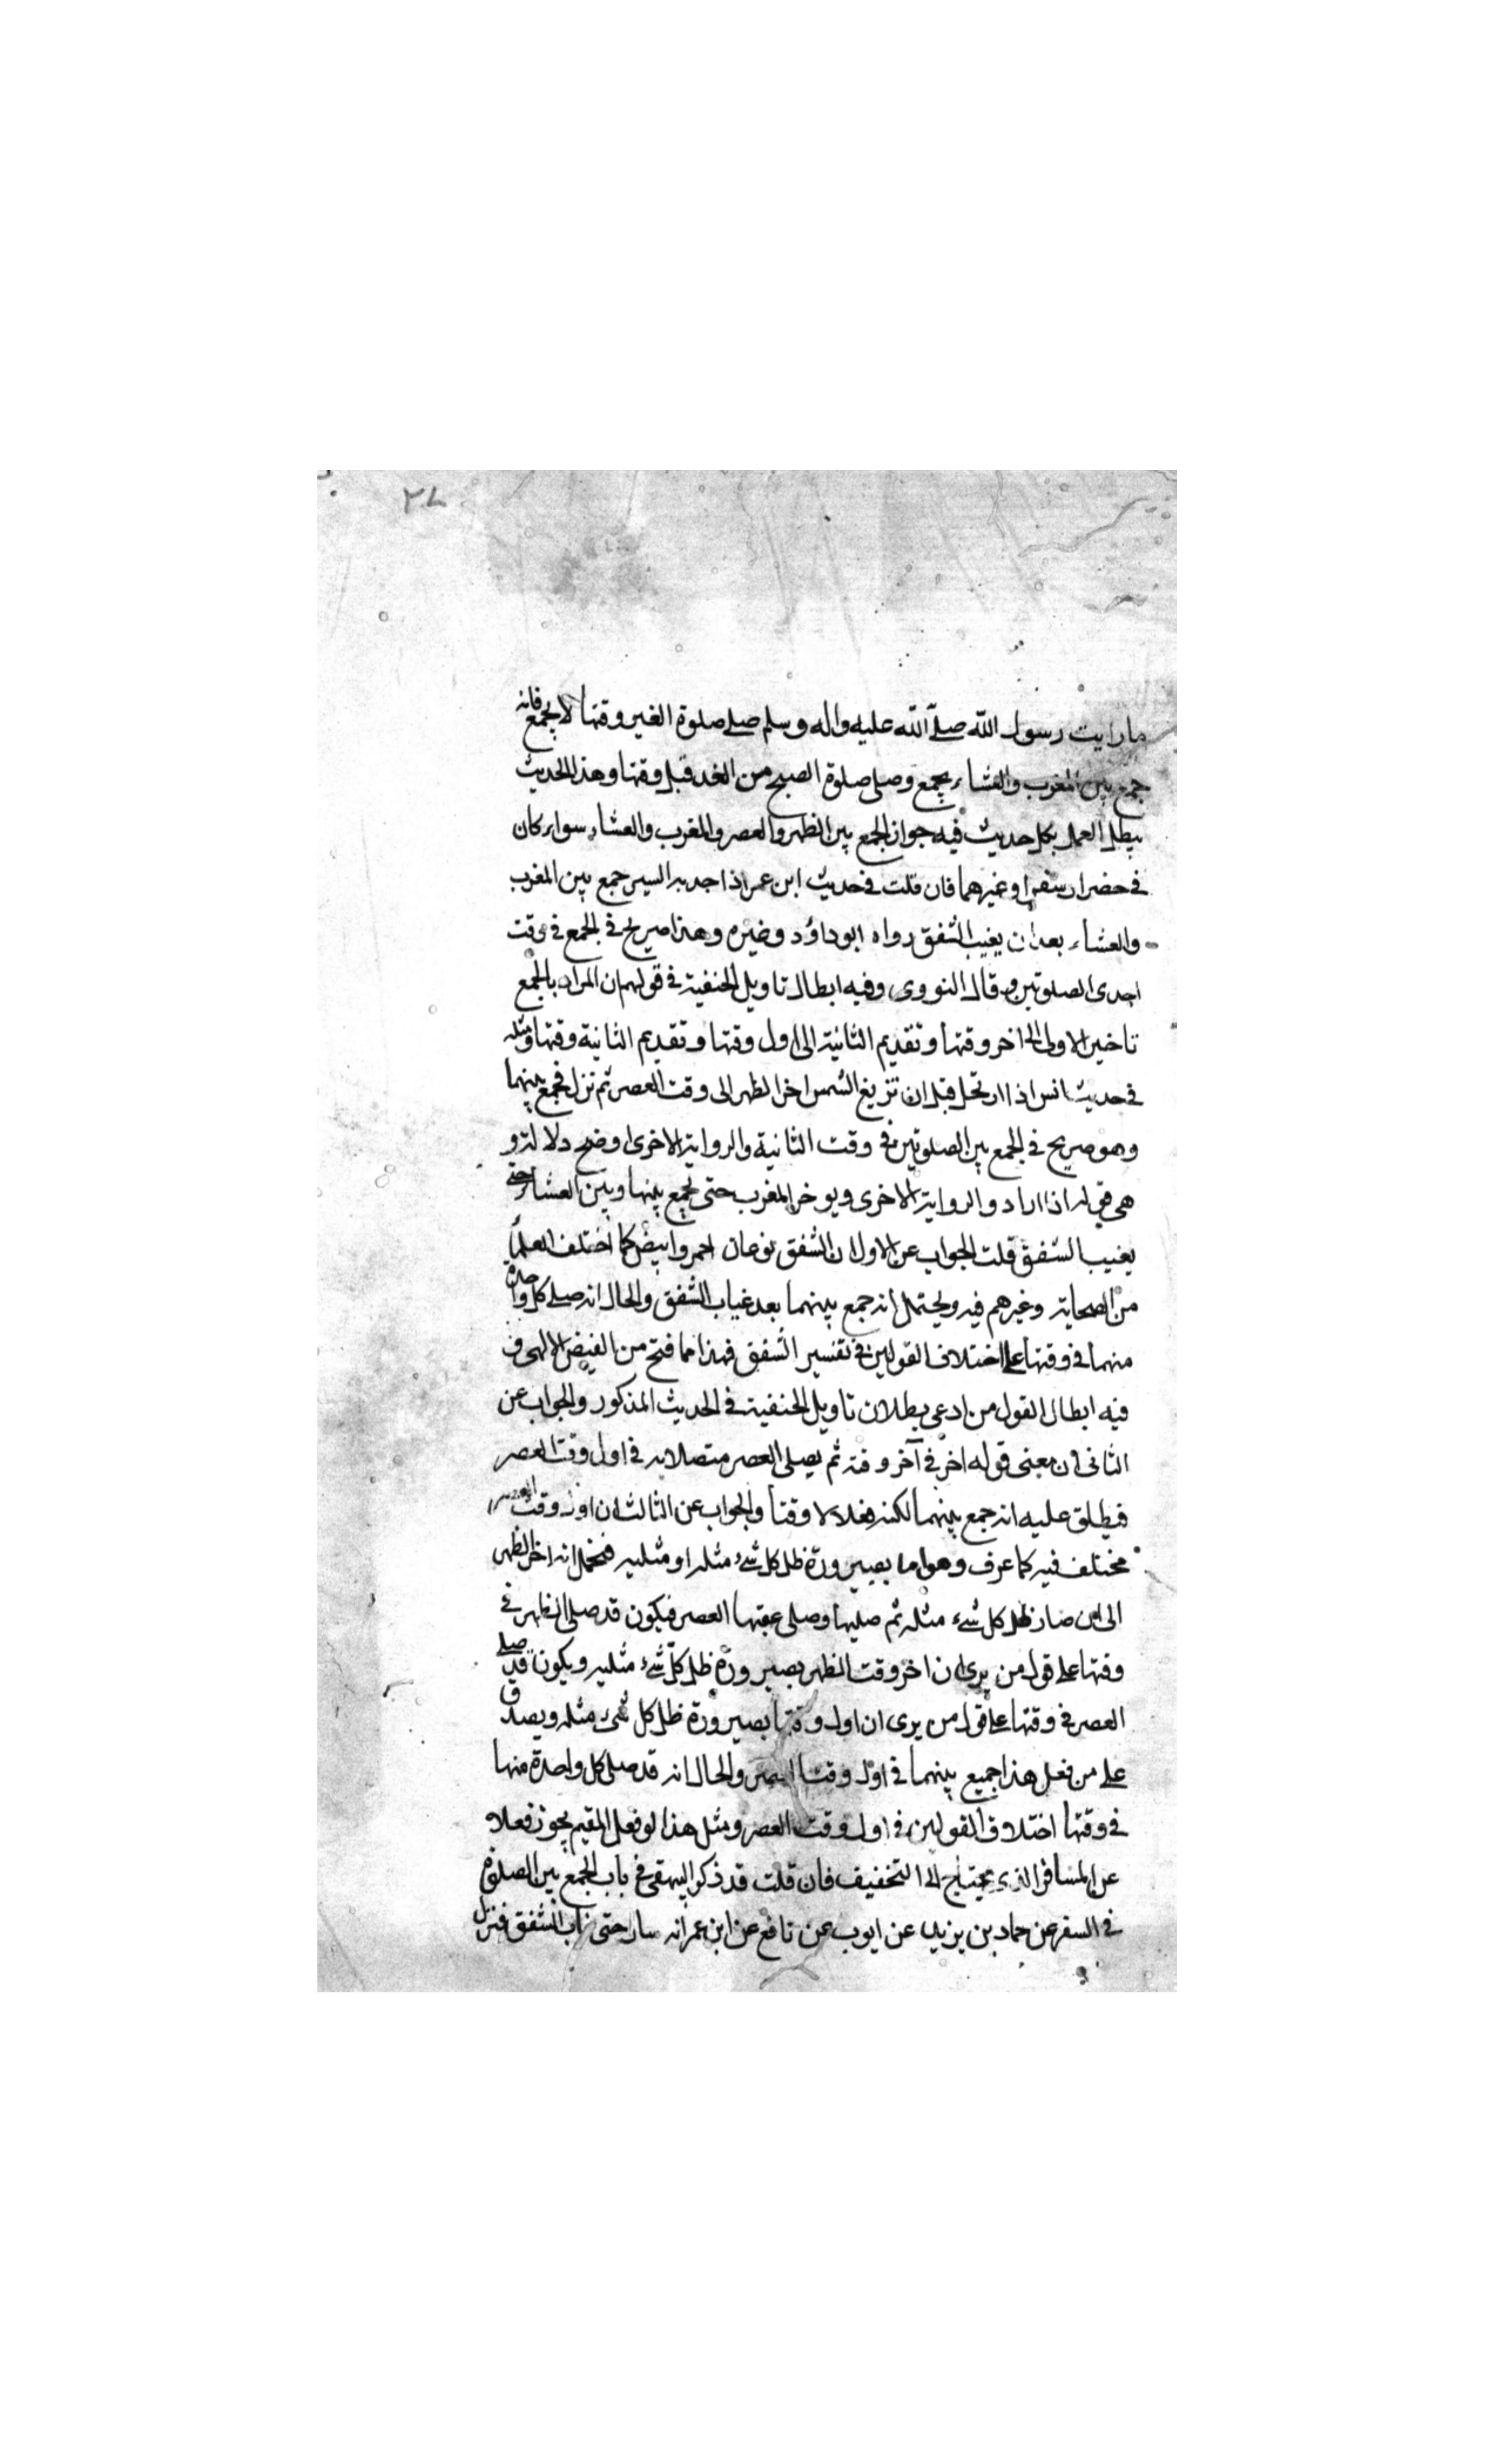 ٢٧
ما رايت رسول الله صلّى الله عليه واله وسلم صلى صلوة الغير وقتها لا بجمع فانه
جمع بين المغرب والعشاء بجمع وصلى صلوة الصبح من الغد قبل وقتها وهذا الحديث
يبطل العمل بكل حديث فيه جواز الجمع بين الظهر والعصر والمغرب والعشاء سواء كان
في حضر او سفر او غيرهما فان قلت في حديث ابن عمر اذا جد به السير جمع بين المغرب
والعشاء بعد ان يغيب الشفق رواه ابو داؤد وغيره وهذا صريح في الجمع في وقت
احدى الصلوتين وقال النووى وفيه ابطال تاويل الحنفية في قولهم ان المراد بالجمع
تاخير الاولى الى اخر وقتها وتقديم الثانية الى اول وقتها وتقديم الثانية وقتها ومثله
في حديث انس اذا ارتحل قبل ان تزيغ الشمس اخر الظهر الى وقت العصر ثم نزل فجمع بينهما
وهو صريح في الجمع بين الصلوتين في وقت الثانية والرواية الاخرى اوضح دلالة و
هى قوله اذا اراد والرواية الاخرى ويوخر المغرب حتى يجمع بينها وبين العشاء حتى
يغيب الشفق قلت الجواب عن الاول ان الشفق نوعان احمر وابيض كما اختلف العلماء
من الصحابة وغيرهم فيه ويحتمل انه جمع بينهما بعد غياب الشفق والحال انه صلى كل واحدة
منهما في وقتها على اختلاف القولين في تفسير الشفق فهذا مما فتح من الفيض الالهى و
فيه ابطال القول من ادعى بطلان تاويل الحنفية في الحديث المذكور والجواب عن
الثانى ان معنى قوله اخر في آخر وقته ثم يصلى العصر متصلا به في اول وقت العصر
فيطلق عليه انه جمع بينهما لكنه فعلا لا وقتا والجواب عن الثالث ان اول وقت العصر
مختلف فيه كما عرف وهو اما بصيرورة ظل كل شئ مثله او مثليه فيحتمل انه اخر الظهر
الى ان صار ظل كل شئ مثله ثم صليها وصلى عقبها العصر فيكون قد صلى الظهر في
وقتها على قول من يرى ان اخر وقت الظهر بصيرورة ظل كلّ شئ مثليه ويكون قد صلى
العصر في وقتها على قول من يرى ان اول وقتها بصيرورة ظل كل شئ مثله ويصدق
على من فعل هذا جميع بينهما في اول وقت العصر والحال انه قد صلى كل واحدة منها
في وقتها اختلاف القولين في اول وقت العصر ومثل هذا لو فعل المقيم يجوز فعلا
عن المسافر الذى يحتاج الى التخفيف فان قلت قد ذكر البيهقى في باب الجمع بين الصلوة
في السفر عن حماد بن يزيد عن ايوب عن نافع عن ابن عمر انه سار حتى غاب الشفق فنزل